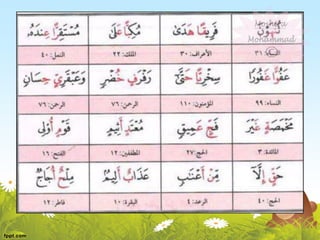 مُسْتَقِرًّا عِندَهُ مُكِبًّا عَلَىٰ فَرِيقًا هَدَىٰ
النمل: ٤٠ الملك: ٢٢ الأعراف: ٣٠
وَعَبْقَرِيٍّ حِسَانٍ رَفْرَفٍ خُضْرٍ سِخْرِيًّا حَتَّىٰ عَفُوًّا غَفُورًا
الرحمن: ٧٦ الرحمن: ٧٦ المؤمنون: ١١٠ النساء: ٩٩
قَوْمٍ أُولِي مُعْتَدٍ أَثِيمٍ فَجٍّ عَمِيقٍ مَخْمَصَةٍ غَيْرَ
الفتح: ١٦ المطففين: ١٢ الحج: ٢٧ المائدة: ٣
مِلْحٌ أُجَاجٌ عَذَابٌ أَلِيمٌ مِّنْ أَعْنَابٍ حَقٍّ إِلَّا
فاطر: ١٢ البقرة: ١٠ الرعد: ٤ الحج: ٤٠
Mohammad
fppt.com